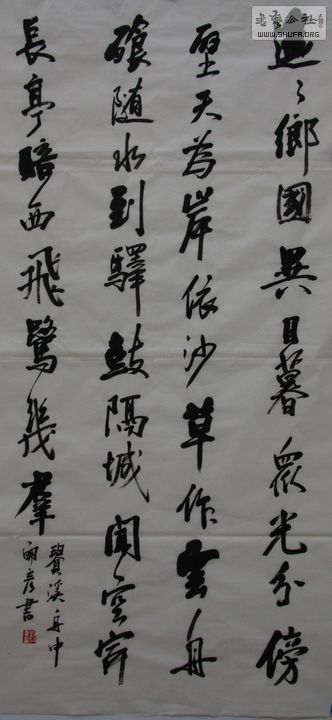 書藝公社
WWW.SHUFA.ORG
迢々鄉國異日暮眾光分傍
壁天為岸依沙草作雲舟
隨水到驛鼓隔城聞空
長亭暗西飛鷺幾群
溪舟中
彥書